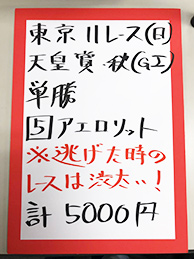 東京11レース(日)
天皇賞・秋(GI)
単勝
5アエロリット
※逃げた時の
レースは渋太い!
計5000円